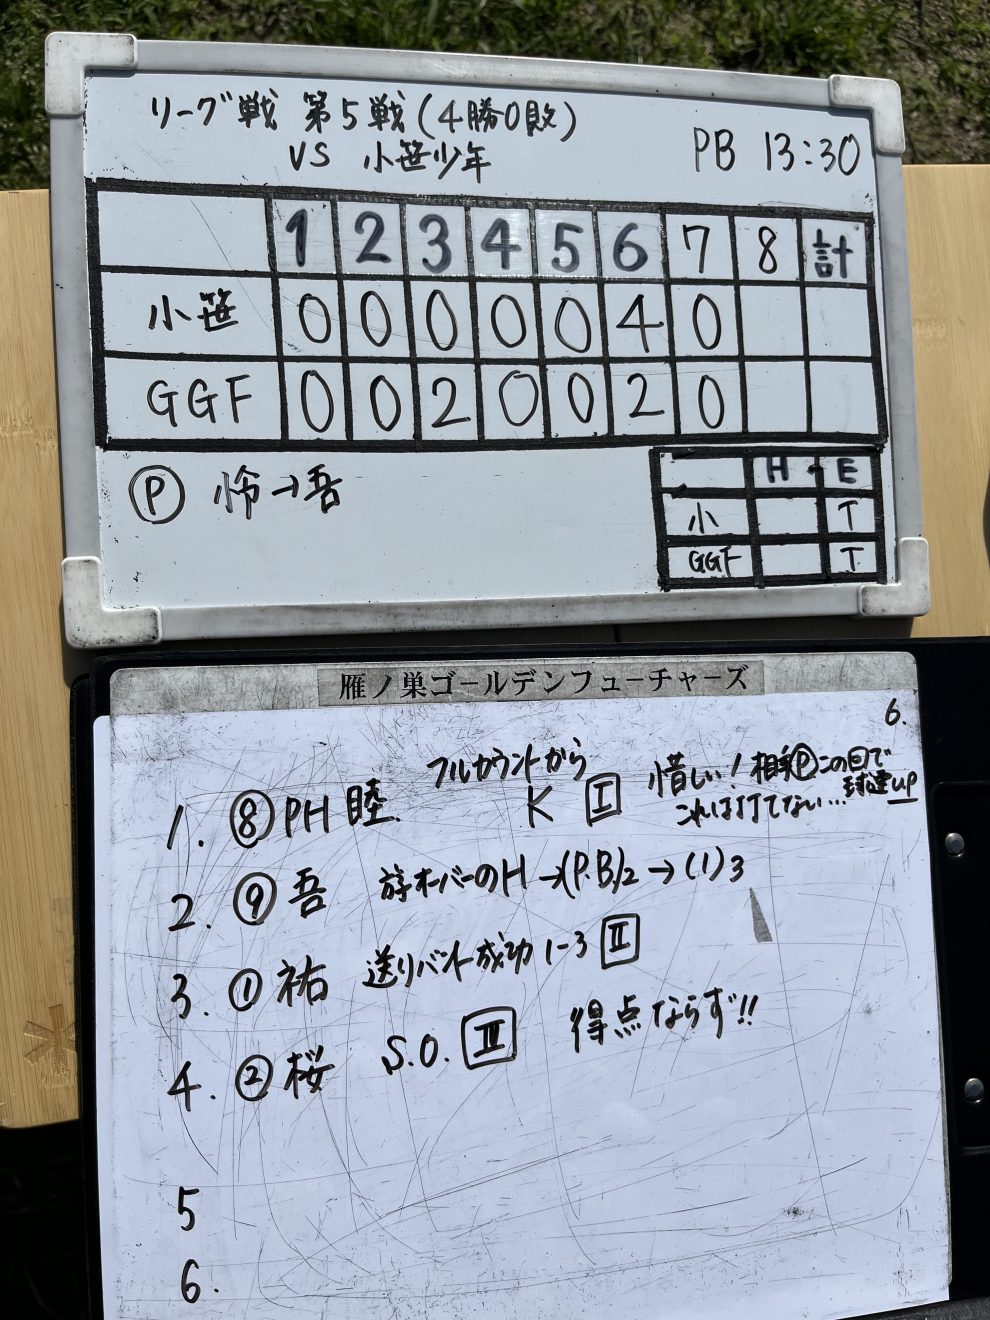 リーグ戦 第5戦(4勝0敗)
VS 小笹少年
PB 13:30
1 2 3 4 5 6 7 8 計
小笹 0 0 0 0 0 4 0
GGF 0 0 2 0 0 2 0
Ⓟ 怜→吾
H E
小 T
GGF T
雁ノ巣ゴールデンフューチャーズ
6.
フルカウントから
1. ⑧ PH 睦 K Ⅰ 惜しい! 相手Ⓟこの回で
これは打てない... 球速up
2. ⑨ 吾 オーバーのH→(P.B)2→(1)3
3. ① 祐 送りバント成功 1-3 Ⅱ
4. ② 桜 S.O. Ⅲ 得点ならず!!
5
6.